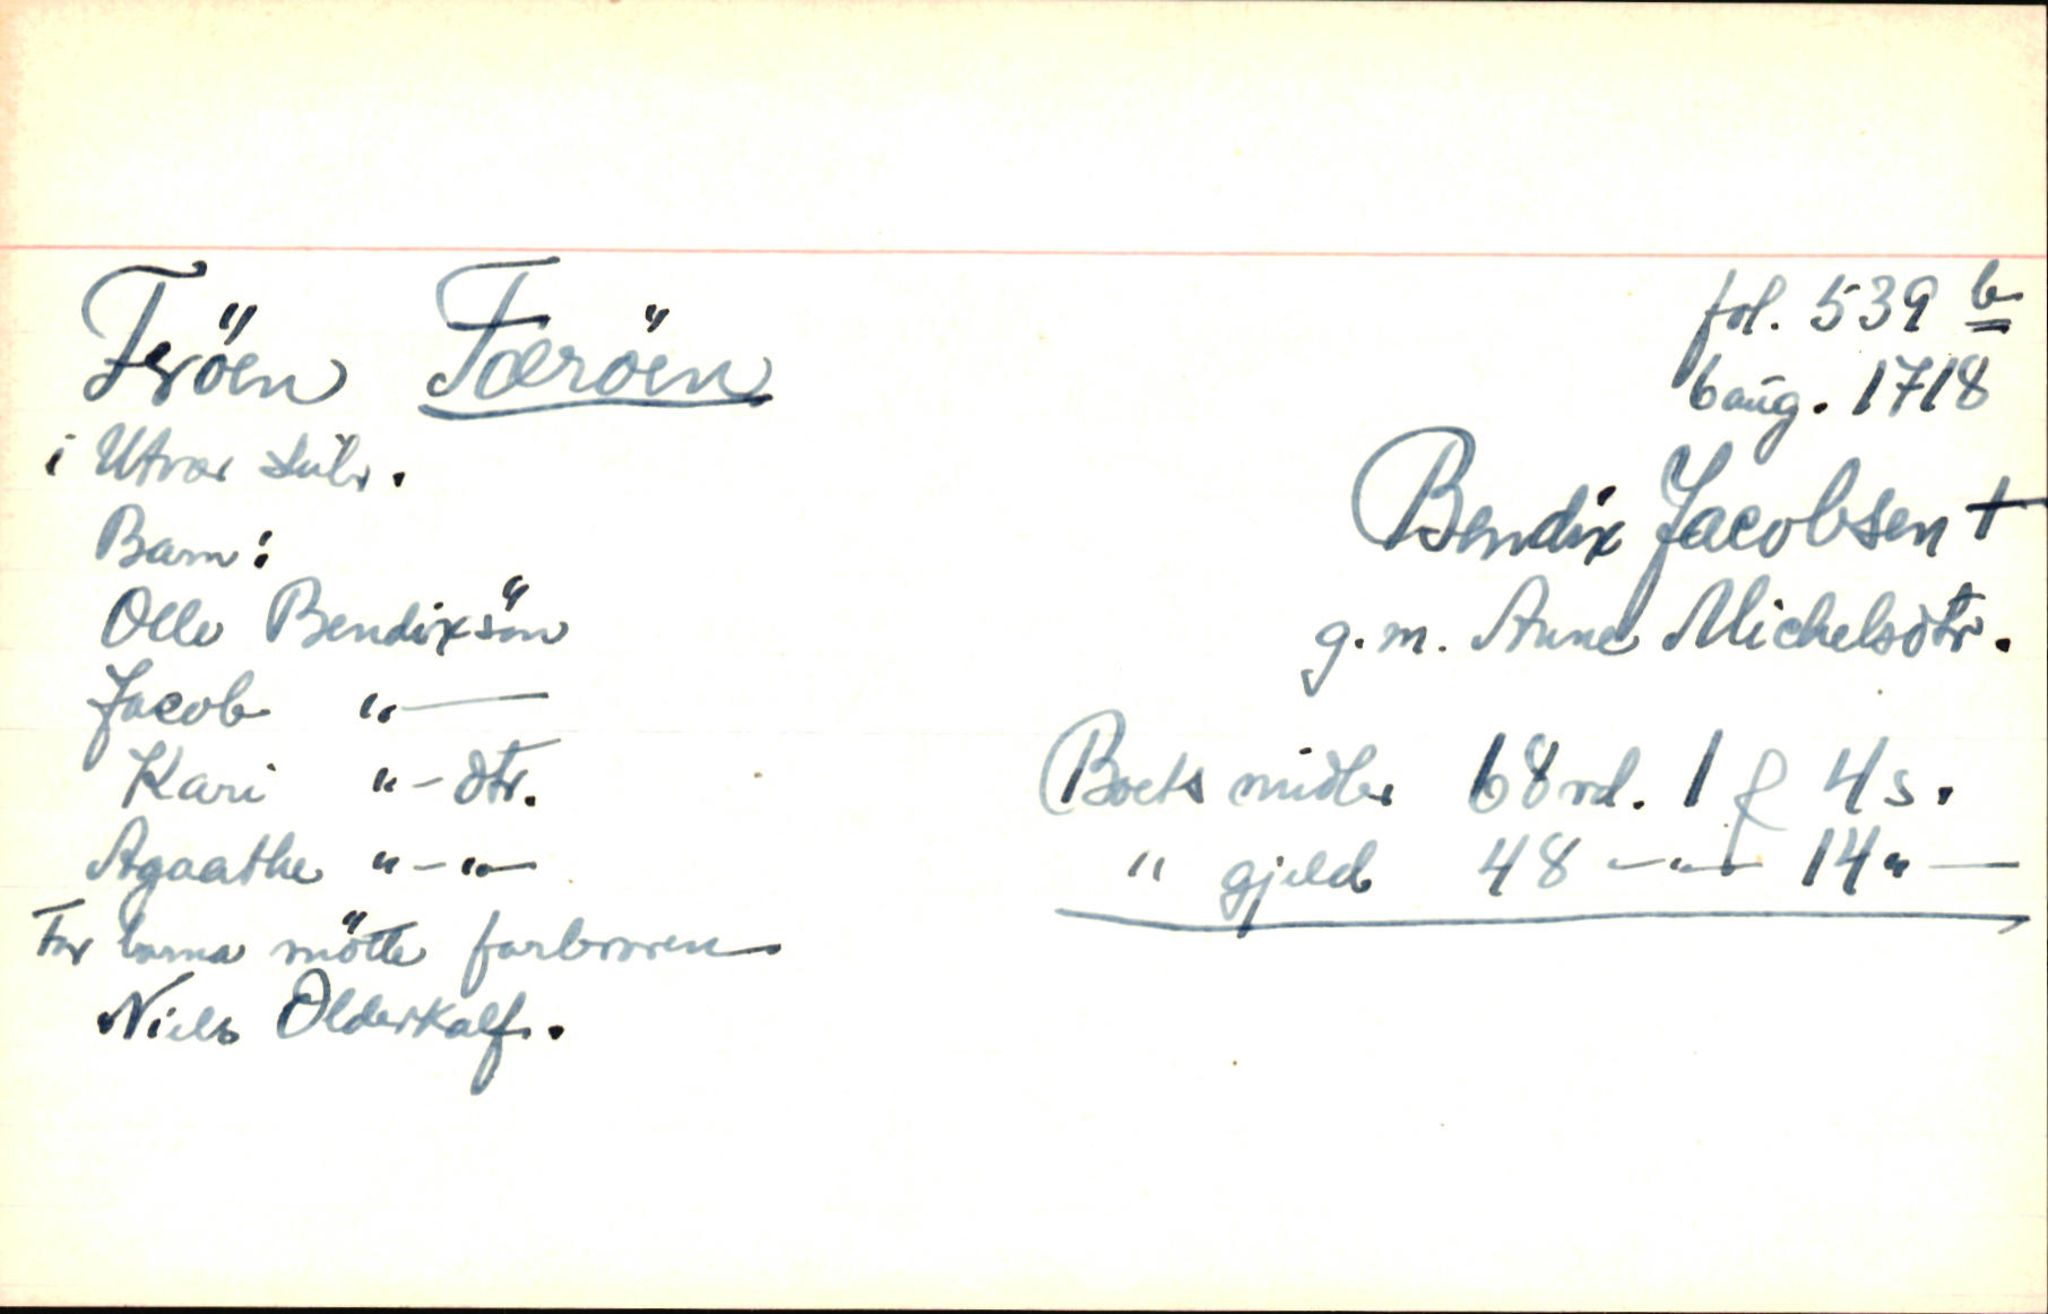 Fröen Færöen
i Utvær skibr.
Barn:
Olle Bendixsön
Jacob "—
Kari "- dtr.
Agaathe "-"-
For barna mötte farbroren
Niels Olderkalf.
fol. 539 b
6 aug. 1718
Bendix Jacobsen +
g.m. Anne Michelsdtr.
Boets midler 68 rd. 1 ƒ 4 s.
" gjeld 48 -"- 14 " -